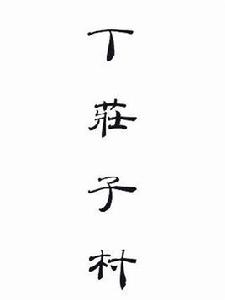 丁莊子村